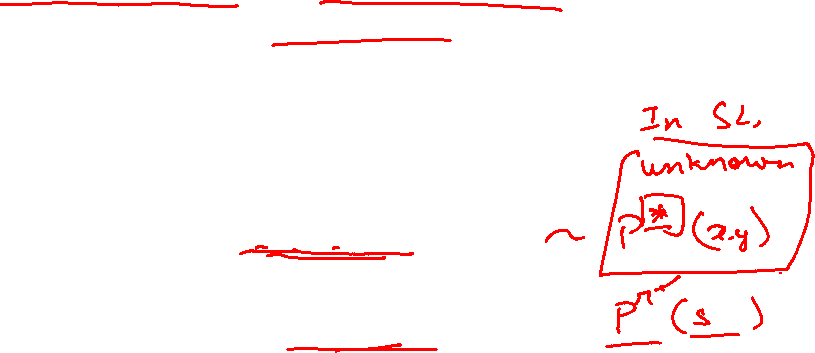 In SL,
unknown
~ P* (x,y)
P^π* (s)